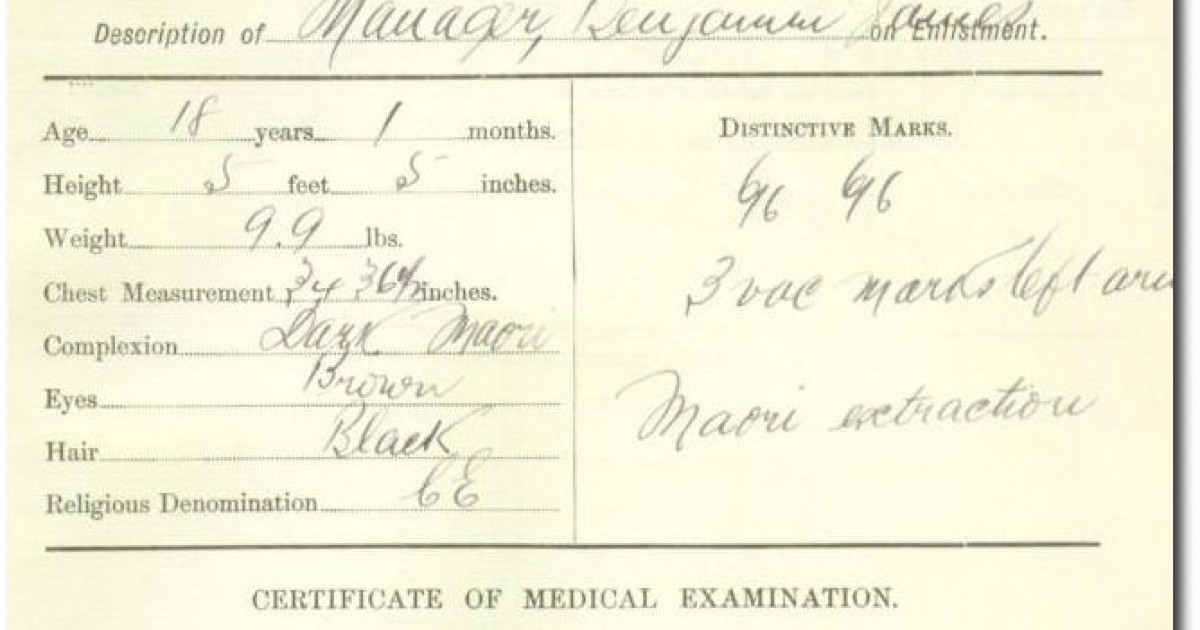 Description of Manager, Benjamin James on Enlistment.
Age 18 years 1 months.
Height 5 feet 5 inches.
Weight 9.9 lbs.
Chest Measurement 34 36½ inches.
Complexion Dark Maori
Eyes Brown
Hair Black
Religious Denomination CE
DISTINCTIVE MARKS.
6/6 6/6
3 vac marks left arm
Maori extraction
CERTIFICATE OF MEDICAL EXAMINATION.